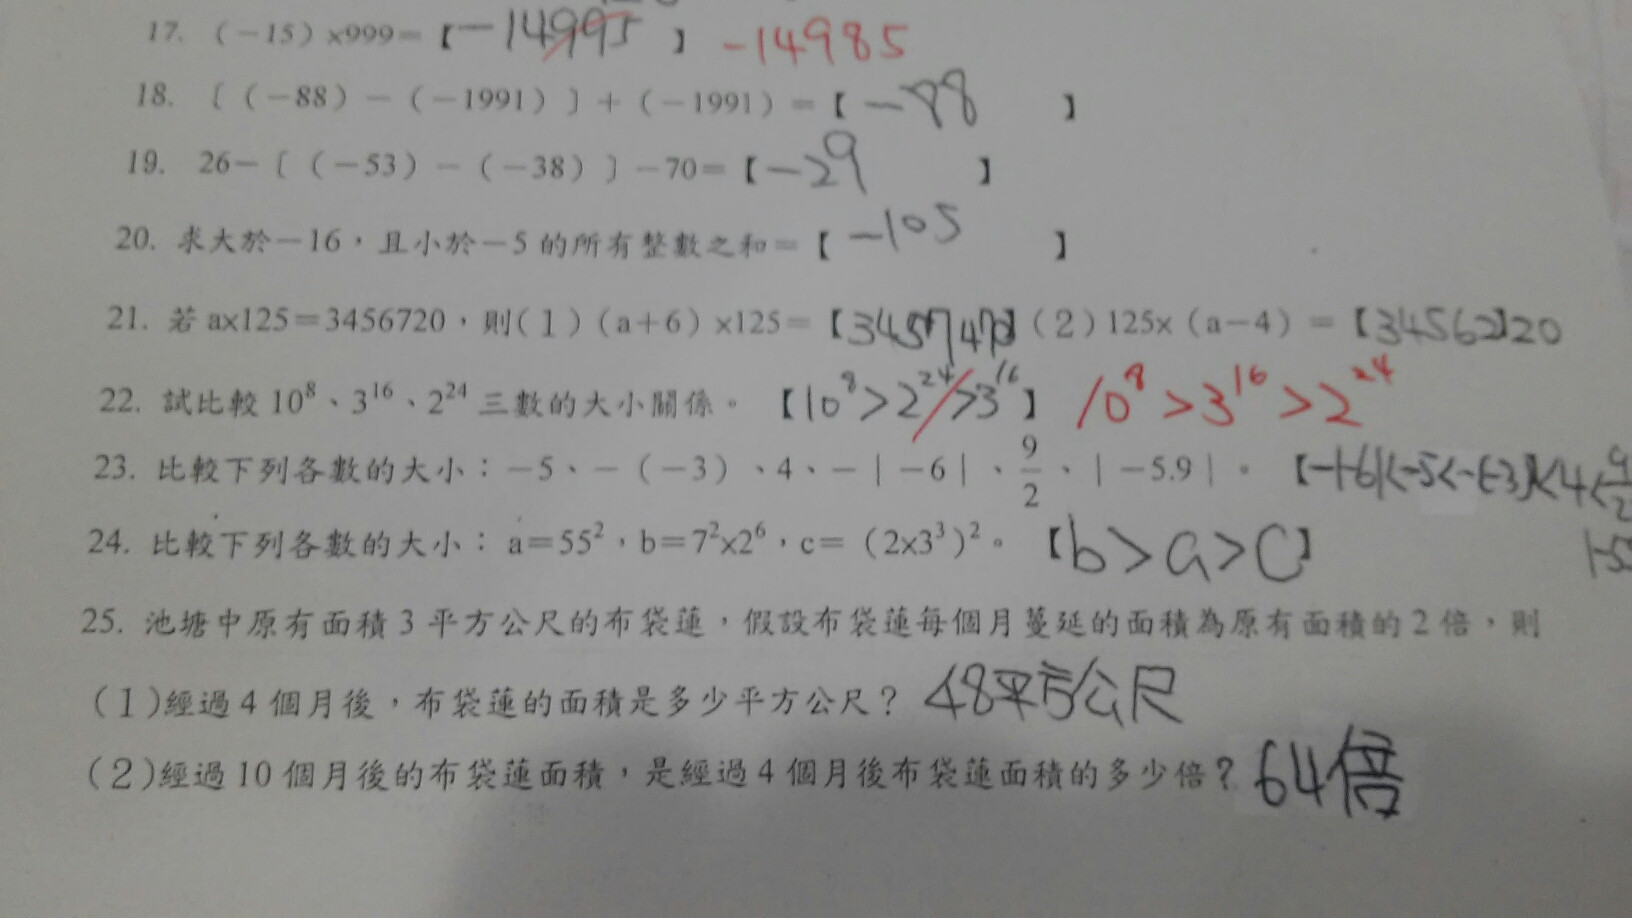 17. (－15)x999＝【-14995】 -14985
18. 〔(－88)－(－1991)〕＋(－1991)＝【-88】
19. 26－〔(－53)－(－38)〕－70＝【-29】
20. 求大於－16，且小於－5的所有整數之和＝【-105】
21. 若ax125＝3456720，則(1)(a＋6)x125＝【3457470】(2)125x(a－4)＝【3456220】
22. 試比較10⁸、3¹⁶、2²⁴三數的大小關係。【10⁸>2²⁴>3¹⁶】 10⁸>3¹⁶>2²⁴
23. 比較下列各數的大小：－5、－(－3)、4、－|－6|、9/2、|－5.9|。【-|-6|<-5<-(-3)<4<9/2
24. 比較下列各數的大小：a＝55²，b＝7²x2⁶，c＝(2x3³)²。【b>a>c】
25. 池塘中原有面積3平方公尺的布袋蓮，假設布袋蓮每個月蔓延的面積為原有面積的2倍，則
(1)經過4個月後，布袋蓮的面積是多少平方公尺？48平方公尺
(2)經過10個月後的布袋蓮面積，是經過4個月後布袋蓮面積的多少倍？64倍